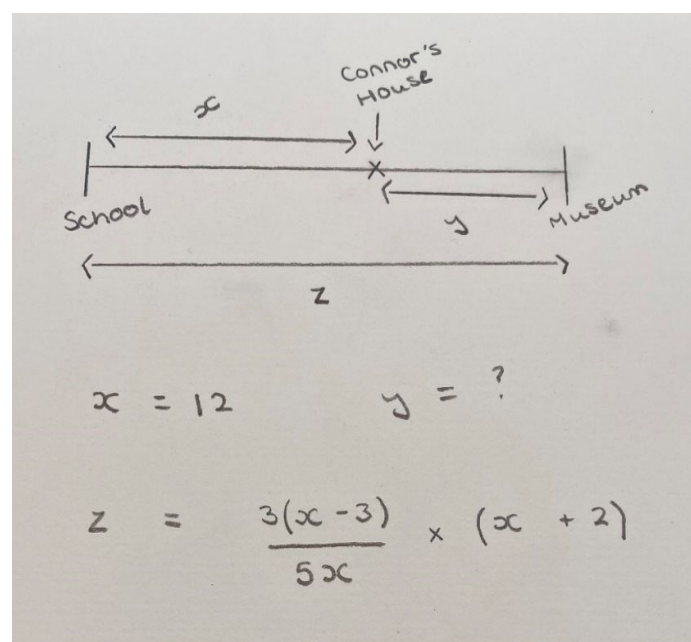 Connor's
House
x
School
Museum
y
z
x = 12 y = ?
z = 3(x - 3) × (x + 2)
5x